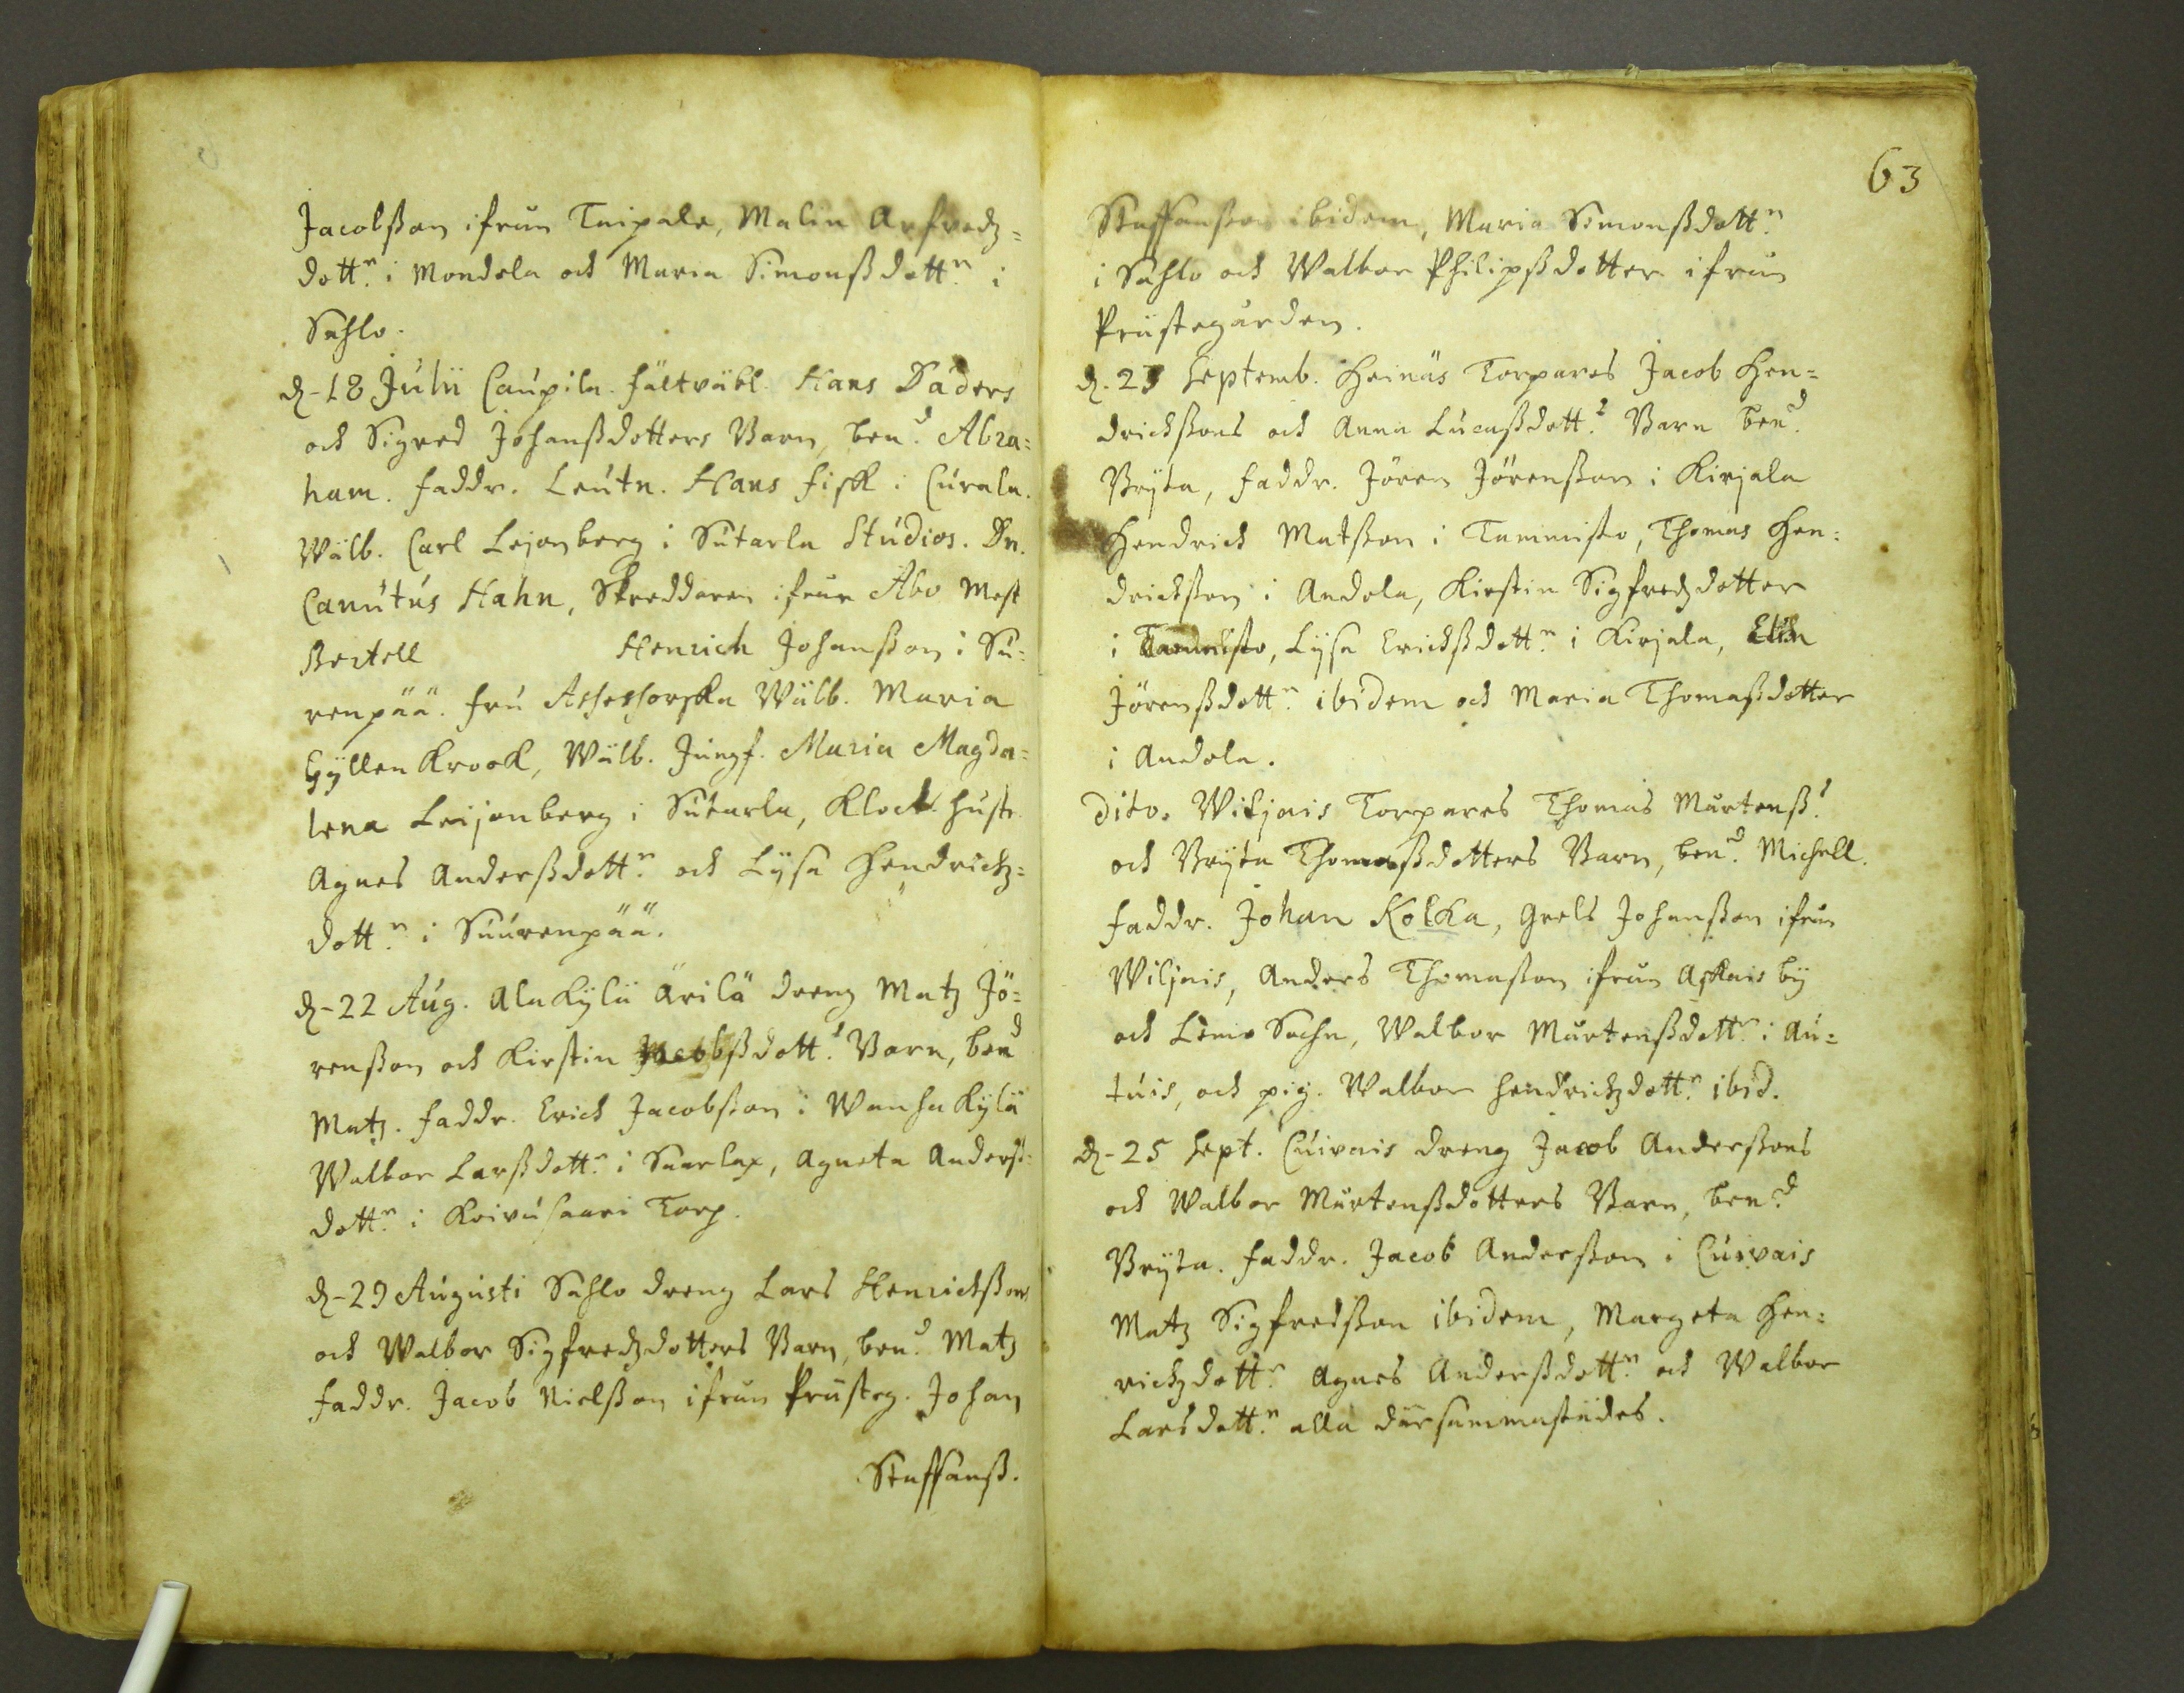 Jacobßon ifrån Taipale, Malin Arfredz=
dott.n i Mondola och Maria Simonßdott.n i
Sahlo.
d. 18 Julii Caupila. fältväbl. Hans Daders
och Sigred Johanßdotters Barn, ben.d Abra=
ham. faddr. Leutn. Hans fisk i Curala.
Wälb. Carl Lejonberg i Sutarla Studios. Dn.
Canutus Hahn, Skreddaren ifrån Åbo Mest
Bertell Henrich Johanßon i Su=
renpää. fru Assessorska Wälb. Maria
GyllenKrook, Wälb. Jungf. Maria Magda=
lena Leijonberg i Sutarla, Klock. hustr.
Agnes Anderßdott.n och Lysa Hendrichz=
dott.n i Suurenpää.
d. 22 Aug. AlaKylä Ärilä dreng Matz Jö=
renßon och Kirstin Jacobßdott.s Barn, ben.d
Matz. faddr. Erich Jacobßon i WanhaKylä
Walbor Larßdott.n i Saarlax, Agneta Anderß=
dott.n i Koivusaari Torp.
d. 29 Augusti Sahlo dreng Lars Henrichßons
och Walbor Sigfredzdotters Barn, ben.d Matz
faddr. Jacob Nielßon ifrån Prästeg. Johan
Staffanß.
63
Staffanßon ibidem, Maria Simonßdott.n
i Sahlo och Walbor Philipßdotter ifrån
Prästegården.
d. 23 Septemb. Heinäs Torpares Jacob Hen=
drichßons och Anna Lucaßdott.s Barn ben.d
Bryta, faddr. Jören Jörenßon i Kirjala
Hendrich Matßon i Tammisto, Thomas Hen=
drichßon i Andola, Kirstin Sigfredzdotter
i Tammisto, Lysa Erichßdott.n i Kirjala, Elin
Jörenßdott.n ibidem och Maria Thomaßdotter
i Andola.
dito. Wiljais Torpares Thomas Mårtenß.s
och Bryta Thomaßdotters Barn, ben.d Michell.
faddr. Johan Kolka, Grels Johanßon ifrån
Wiljais, Anders Thomaßon ifrån Askais by
och Lemo Sochn, Walbor Mårtenßdott.n i Au=
tuis, och pig. Walbor Hendrichzdott.n ibid.
d. 25 Sept. Cuivais dreng Jacob Anderßons
och Walbor Mårtenßdotters Barn, ben.d
Bryta. faddr. Jacob Anderßon i Cuivais
Matz Sigfredßon ibidem, Margeta Hen=
richzdott.n Agnes Anderßdott.n och Walbor
Larsdott.n alla därsammastädes.